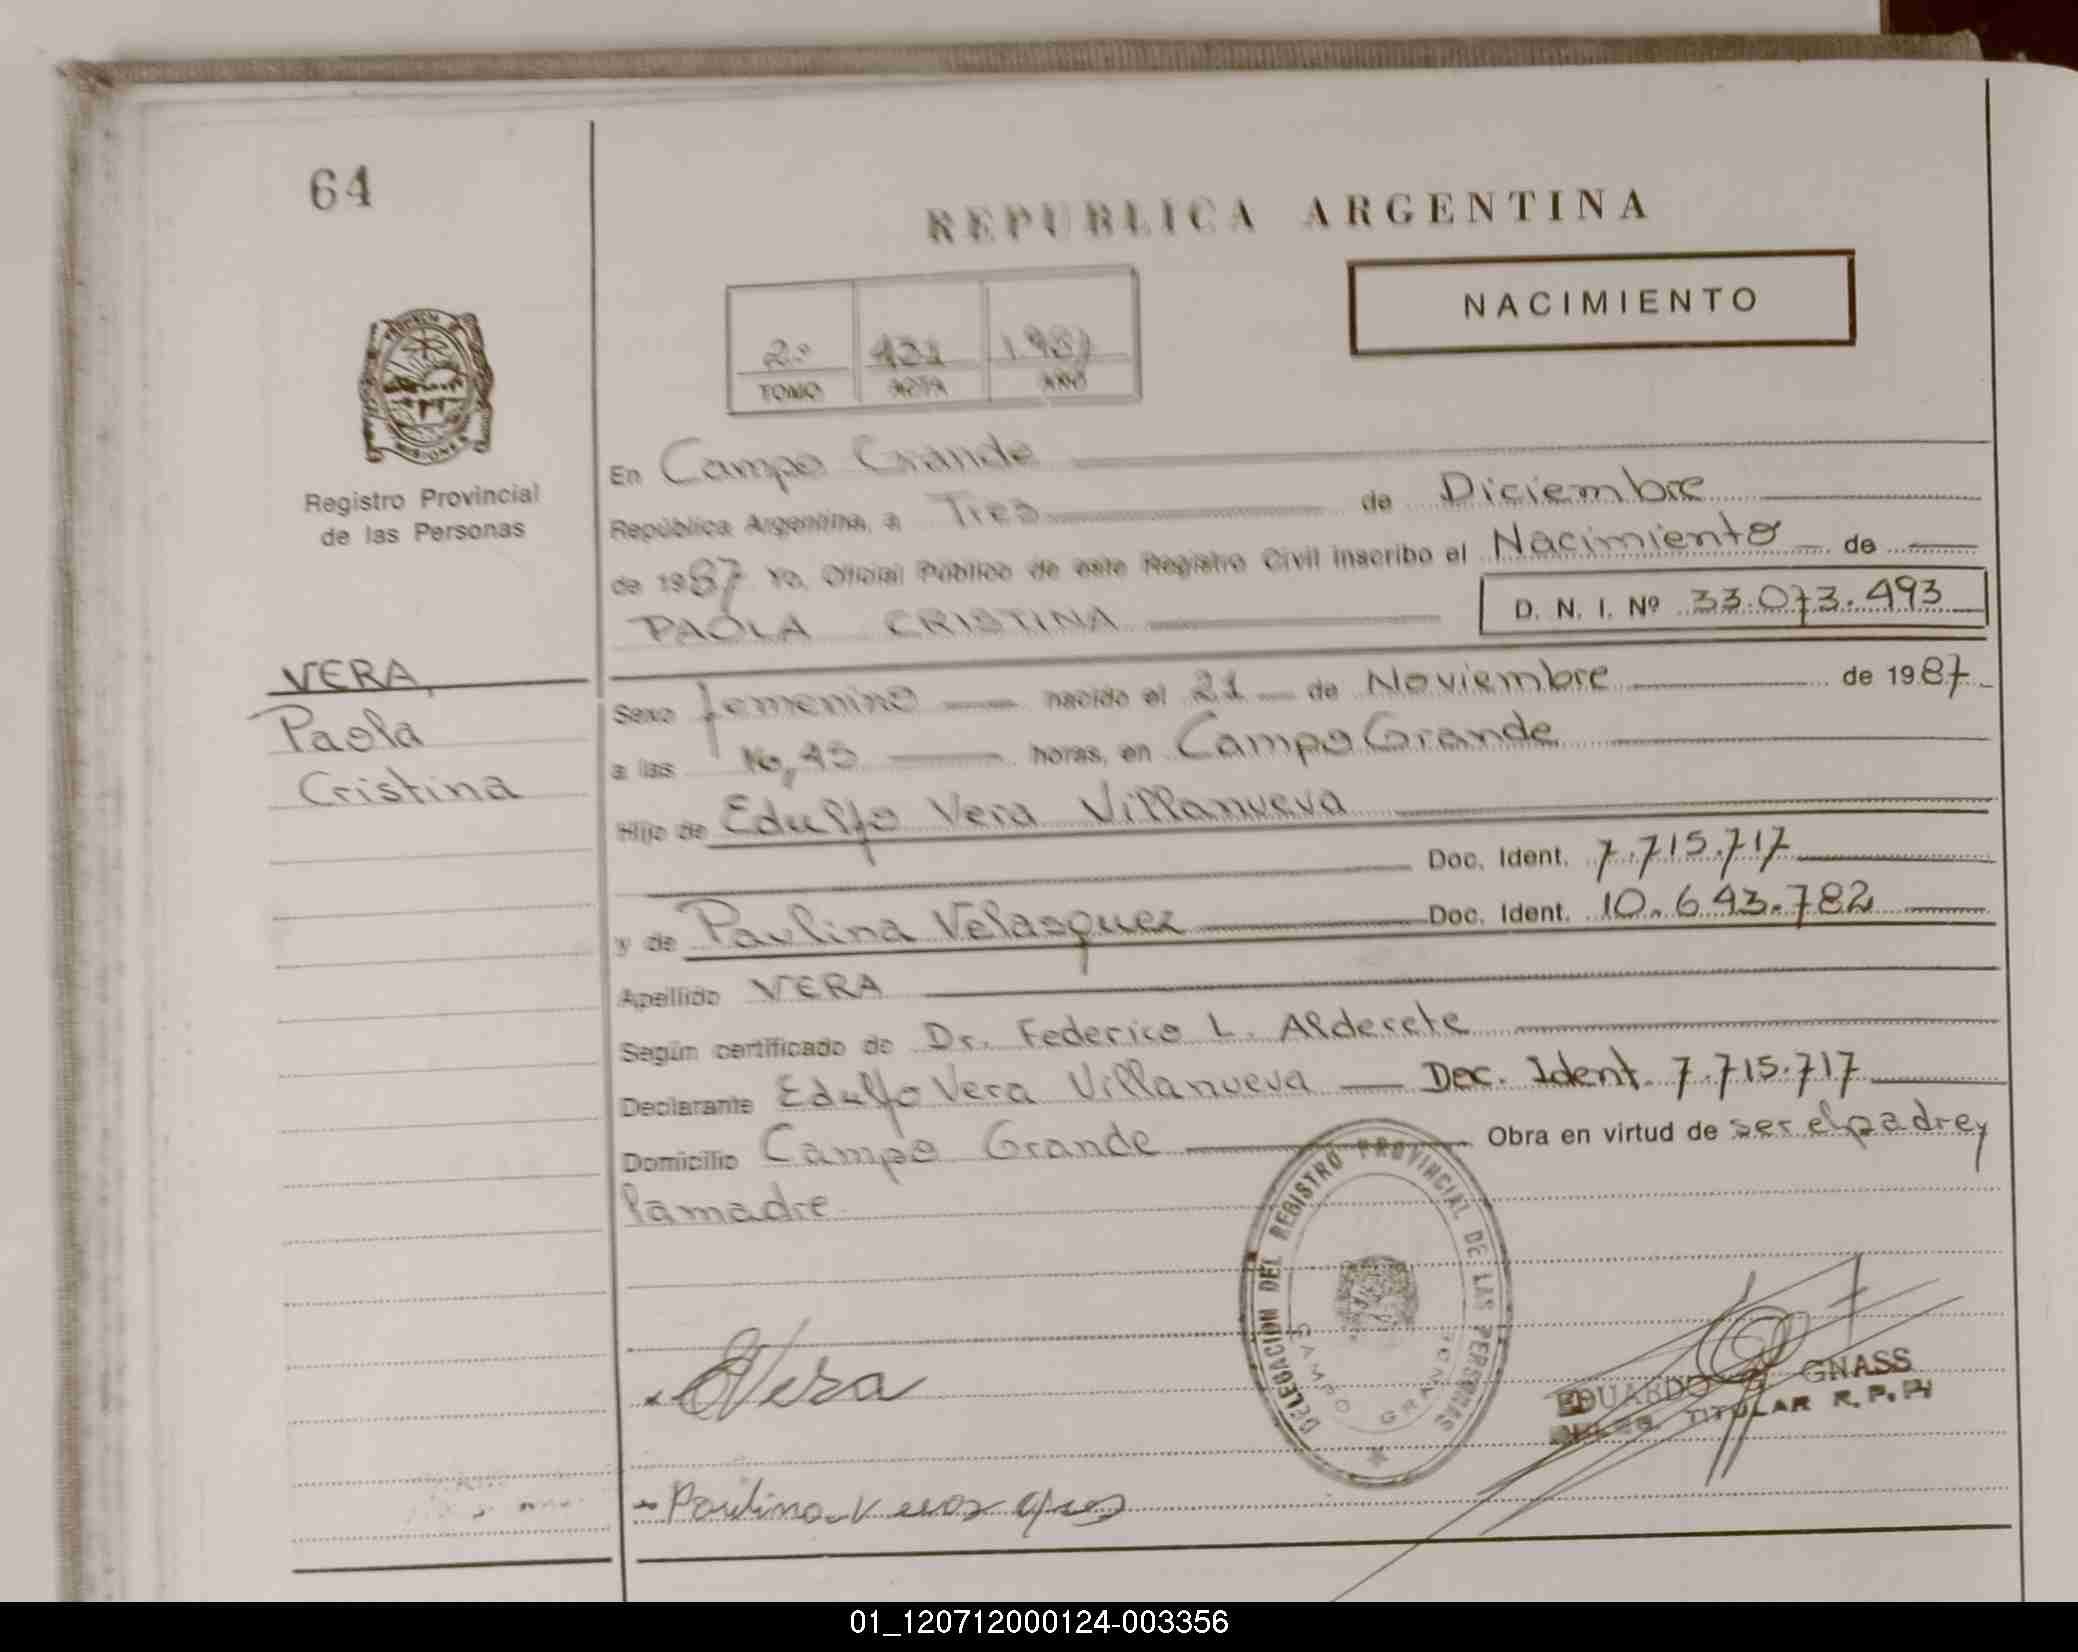 64
REPUBLICA ARGENTINA
NACIMIENTO
2º 421 1987
TOMO ACTA AÑO
PROVINCIA MISIONES
Registro Provincial
de las Personas
En Campo Grande
República Argentina, a Tres de Diciembre
de 1987 Yo, Oficial Público de este Registro Civil inscribo el Nacimiento de
PAOLA CRISTINA D. N. I. Nº 33.073.493
VERA,
Paola
Cristina
Sexo femenino nacido el 21 de Noviembre de 1987
a las 16,45 horas, en Campo Grande
Hijo de Edulfo Vera Villanueva
Doc. Ident. 7.715.717
y de Paulina Velasquez Doc. Ident. 10.643.782
Apellido VERA
Según certificado de Dr. Federico L. Alderete
Declarante Edulfo Vera Villanueva Doc. Ident. 7.715.717
Domicilio Campo Grande Obra en virtud de ser el padre y
la madre
DELEGACION DEL REGISTRO PROVINCIAL DE LAS PERSONAS
CAMPO GRANDE
Vera
EDUARDO GNASS
TITULAR R.P.P.
Paulina
01_120712000124-003356